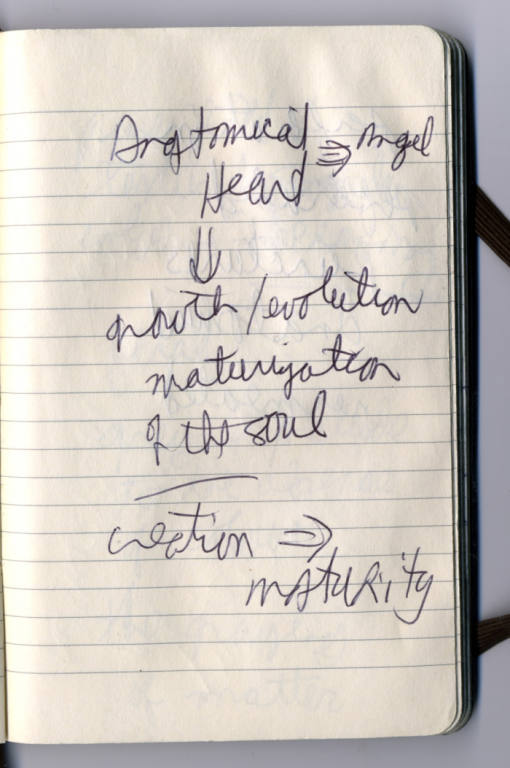 Anatomical ⇒ Angel
Heart
⇓
growth/evolution
maturization
of the soul
creation ⇒
maturity